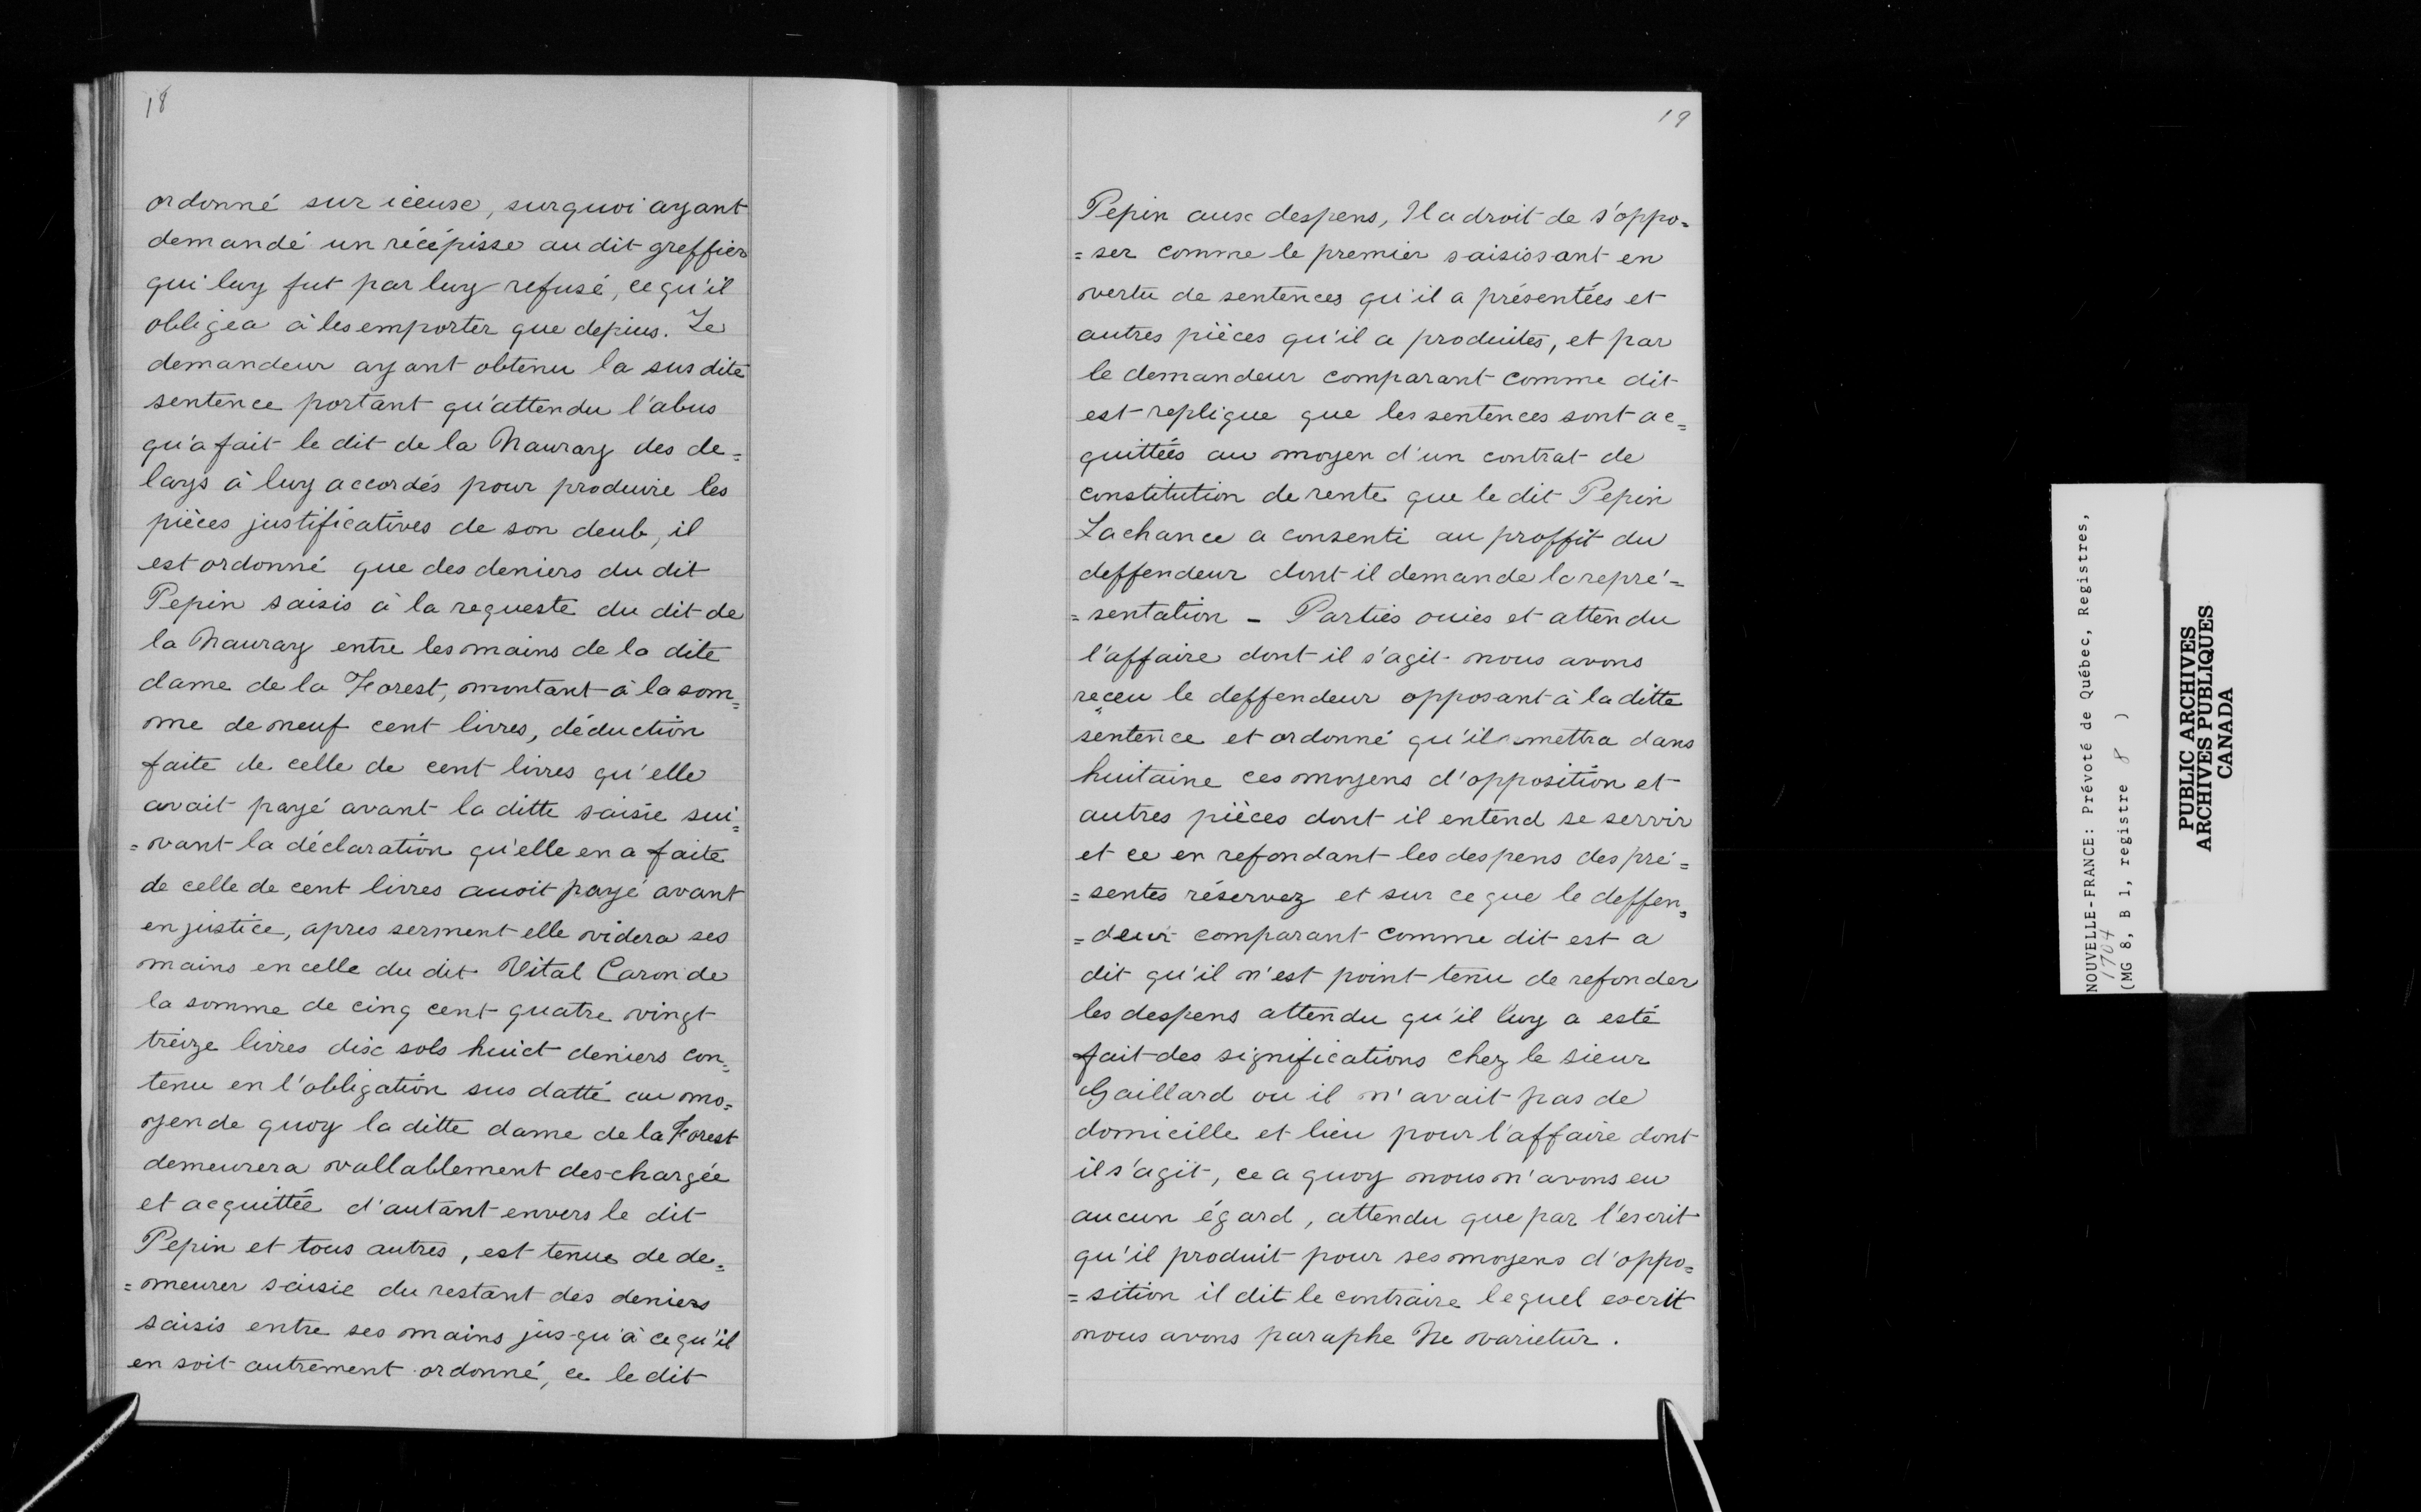 18
ordonné sur iceuse, surquoi ayant
demandé un récépisse au dit greffier
qui luy fut par luy refusé, ce qu'il
obligea à les emporter que depius. Le
demandeur ayant obtenu la sus dite
sentence portant qu'attendu l'abus
qu'a fait le dit de la Nauray des de=
lays à luy accordés pour produire les
pièces justificatives de son deub, il
est ordonné que des deniers du dit
Pepin saisis à la requeste du dit de
la Nauray entre les mains de la dite
dame de la Forest, montant à la som=
me de neuf cent livres, déduction
faite de celle de cent livres qu'elle
avait payé avant la ditte saisie sui=
=vant la déclaration qu'elle en a faite
de celle de cent livres auoit payé avant
en justice, apres serment elle videra ses
mains en celle du dit Vital Caron de
la somme de cinq cent quatre vingt
treize livres dix sols huict deniers con=
tenu en l'obligation sus datté au mo=
yen de quoy la ditte dame de la Forest
demeurera vallablement des-chargée
et acquittée d'autant envers le dit
Pepin et tous autres, est tenue de de=
=meurer saisie du restant des deniers
saisis entre ses mains jus-qu'à ce qu'il
en soit autrement ordonné, ce le dit
19
Pepin aux despens, Il a droit de s'oppo=
=ser comme le premier saisissant en
vertu de sentences qu'il a présentées et
autres pièces qu'il a produites, et par
le demandeur comparant comme dit
est replique que les sentences sont ac=
quittées au moyen d'un contrat de
constitution de rente que le dit Pepin
Lachance a consenti au proffit du
deffendeur dont il demande la repré=
=sentation - Parties ouies et attendu
l'affaire dont il s'agit nous avons
reçeu le deffendeur opposant à la ditte
sentence et ordonné qu'il mettra dans
huitaine ces moyens d'opposition et
autres pièces dont il entend se servir
et ce en refondant les despens des pré=
=sentes réservez et sur ce que le deffen=
=deur comparant comme dit est a
dit qu'il n'est point tenu de refonder
les despens attendu qu'il luy a esté
fait des significations chez le sieur
Gaillard ou il n'avait pas de
domicille et lieu pour l'affaire dont
il s'agit, ce a quoy nous n'avons eu
aucun égard, attendu que par l'escrit
qu'il produit pour ses moyens d'oppo=
=sition il dit le contraire lequel escrit
nous avons paraphe Ne varietur.
NOUVELLE-FRANCE: Prévoté de Québec, Registres,
1704
(MG 8, B 1, registre 8 )
PUBLIC ARCHIVES
ARCHIVES PUBLIQUES
CANADA